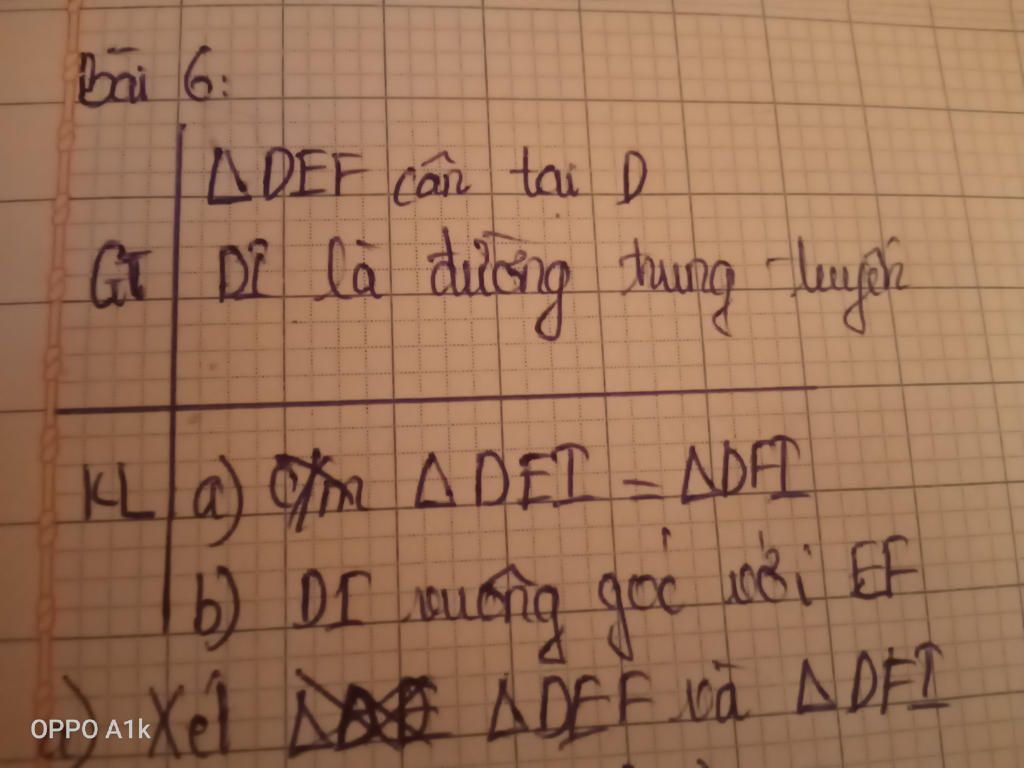 Bài 6:
ΔDEF cân tại D
GT DI là đường trung tuyến
KL a) c/m ΔDEI = ΔDFI
b) DI vuông góc với EF
a) Xét ΔDEF và ΔDFI
OPPO A1k